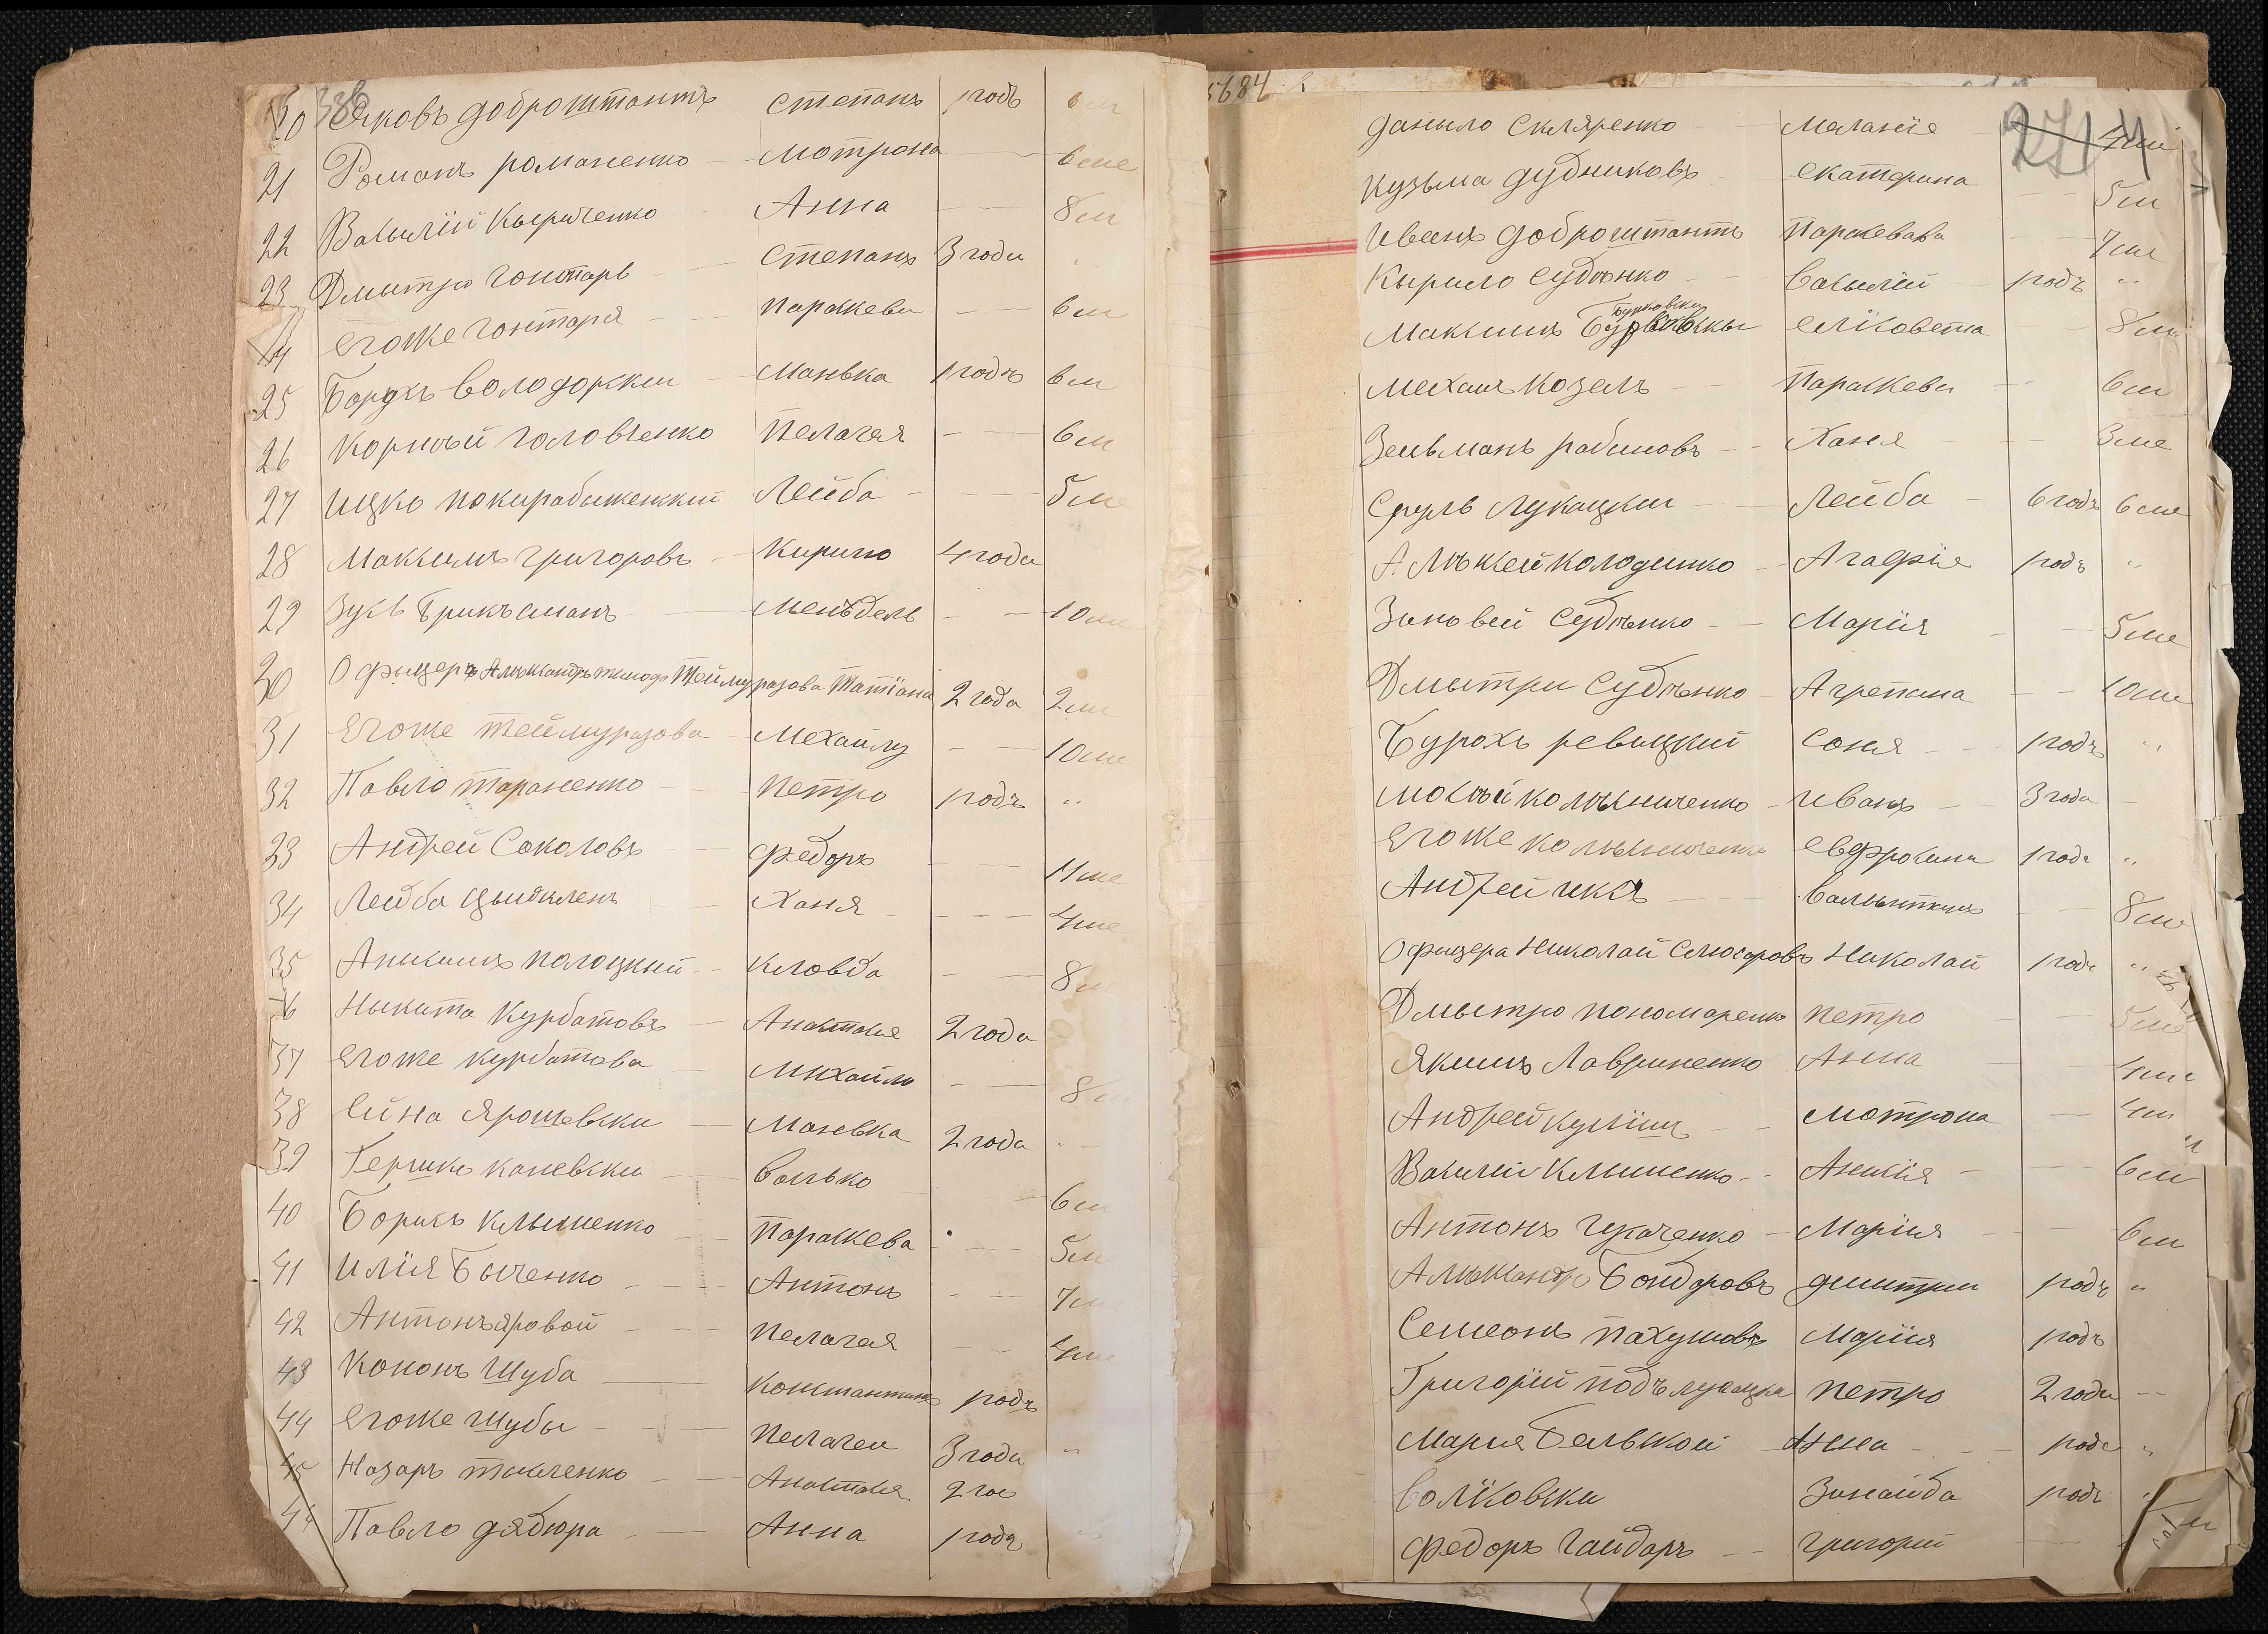 338
20 Яковъ доброштантъ степанъ 1 годъ 6 м
21 Романъ романенко мотрона — 6 ме
22 Васылій Кыриченко Анна — 8 м
23 Дмытро гонтарь степанъ 3 годи
24 егоже гонтаря параскеви — 6 м
25 Борухъ володорски Манька 1 годъ 6 м
26 Корнѣй головченко Пелагея — 6 м
27 ицко Лейба — 5 ме
28 Максимъ григоровъ Кирило 4 года
29 Зусь Брикъманъ менъдель — 10 ме
30 Офыцеръ Алѣксандръ Теймуразова Татіана 2 года 2 м
31 Егоже теймуразова Мехаилу — 10 ме
32 Павло тараненко Петро 1 годъ "
33 Андрей Соколовъ федоръ — 11 ме
34 Лейба Ханя — 4 ме
35 Анисимъ полоцкий — 8 м
36 Ныкита Курбатовъ Анастасие 2 года
37 Егоже курбатова Михаило — 8
38 Ейна Ярошевски Маневка 2 года
39 Гершко каневски волько 6 м
40 Борисъ Клыменко Параскева 5 м
41 Илія Быченко Антонъ 7 м
42 Антонъ яровой пелагея 4 ме
43 Кононъ Шуба Константинъ 1 годъ
44 Егоже шубы Пелагеи 3 годи "
45 Назаръ ткаченко Анастасия 2 го
46 Павло дядюра Анна 1 годъ
5684
271
даныло Скляренко Меланіе 4 м
Кузьма дудниковъ екатерина 5 м
Иванъ доброштантъ Параскевава 7 м
Кырило судѣнко Васылій 1 годъ "
Бурковски
Максимъ елісовета 8 м
мехаилъ Козелъ Параскеви 6 м
Зельманъ рабиновъ Ханя 3 ме
Сруль Лукацки Лейба 6 годъ 6 ме
Алѣксей Колодинко Агафіе 1 годъ "
Зиновей судѣнко Марія 5 ме
Дмытри судѣнко Агрепина 10 ме
Бурохъ ревицкий Соня 1 годъ "
мосѣй колѣсниченко иванъ 3 года
Егоже колѣсниченка евфросина 1 годъ "
Андрей 8 ме
Офицера Николай Слюсаровъ Николай 1 годъ "
Дмытро пономаренко петро 5 ме
Якимъ Лавриненко Анна 4 ме
Андрей куліш мотрона 4 м
Васылій Клыменко Анисія 6 м
Антонъ Марія 6 м
Алѣксандръ Бондоровъ димитрии 1 годъ "
Семеонъ пахумовъ Марія 1 годъ
Григорій подълузацка петро 2 годи
Мария Бельской Анна 1 годъ "
Воліковски Зинаиба 1 годъ
федоръ гайдаръ григорий м